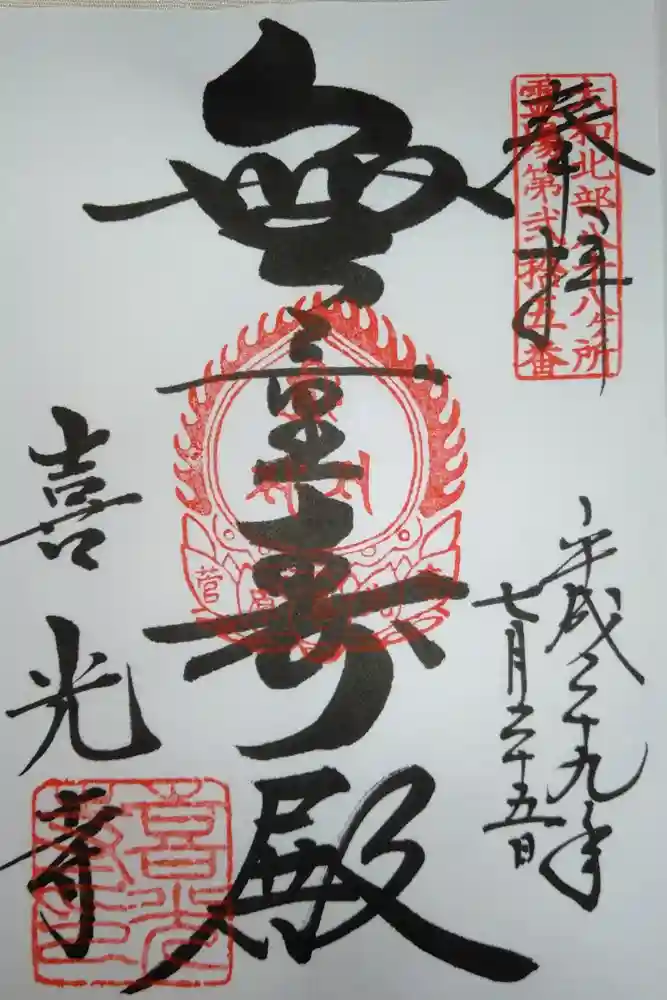 奉拝
大和北部八十八ヶ所
霊場第弐拾五番
平成二十九年
七月二十五日
無量寿殿
喜光寺